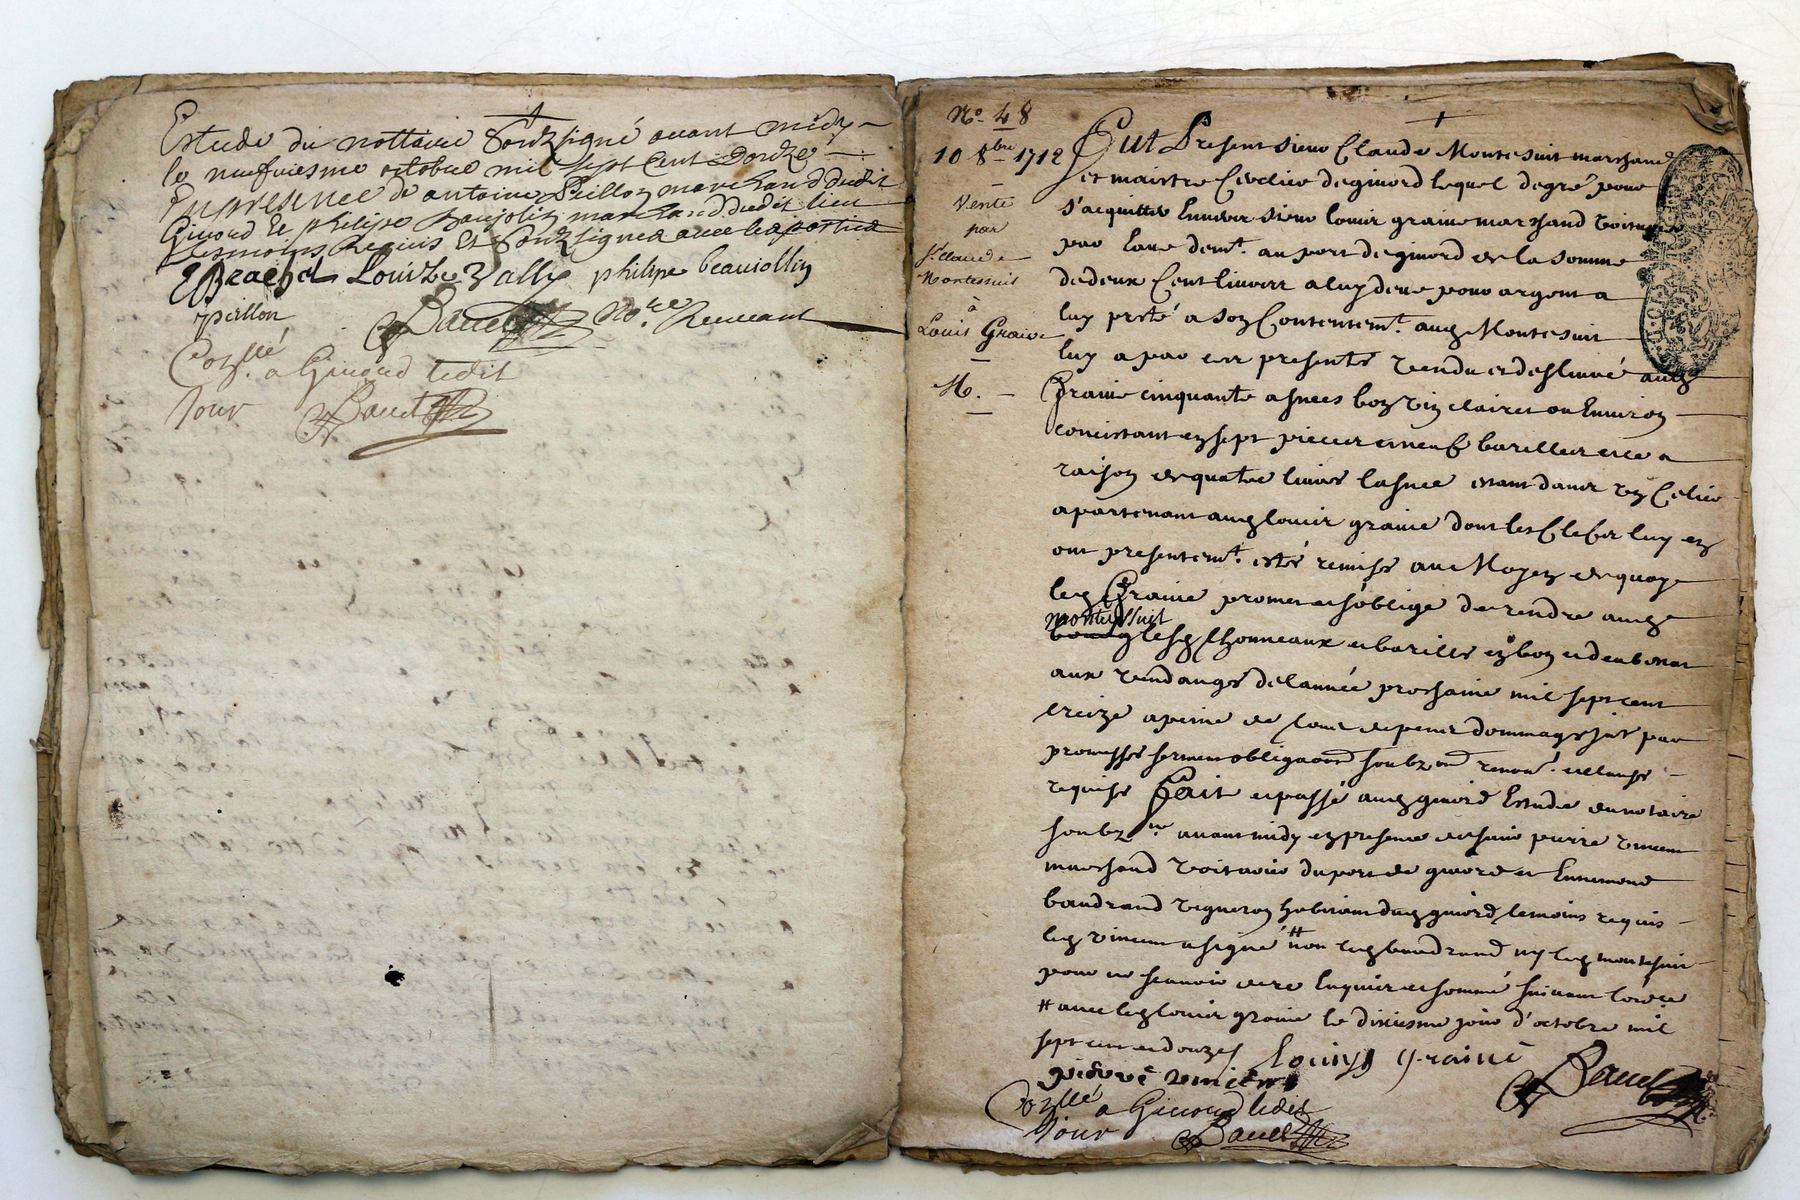 Estude du nottaire Soubzsigné avant midy
le neufviesme octobre mil sept Cent Douze
En presence de antoine Peillon marchand dudit
Givord et philipe Beaujolin marchand dudit lieu
tesmoins Requis Et Soubzsignes avec les parties
Louize Vallie philipe beaujollin
peillon Baud No.re Recevant
Con.llé a Givord ledit
Jour
No. 48
10 8bre 1712
Vente
par
Sr. Claude
Montessuit
à
Louis Graive
M.
Fut Present sieur Claude Montesuit marchand
et maistre Cerclier de givord lequel de gré pour
s'acquitter Envers sieur louis graine marchand voiturier
par Eaue demt. au port de givord de la somme
de deux Cent livres a luy deue pour argent a
luy presté a son Contentemt. aud. Montesuit
luy a par ces presentes vendu et deslivré aud.
Graine cinquante asnees bon vin clairet ou Environ
concistant en sept pieces et neuf barilles et ce a
raison de quatre livres lasnee estant dans un Celier
apartenant aud. louis graine dont les Clefs luy en
ont presentemt. estés remises au Moyen de quoy
led. Graine promet et s'oblige de rendre aud.
montessuit
lesd. thonneaux et barilles en bon et deub estat
aux vendanges de lannée prochaine mil sept cent
treize a peine de tous despens dommages jnt. par
promesses serment obligaons soubzmons renons. et clauses
requises Fait et passé aud. givord Estude du notaire
soubz.ne avant midy en presence de sieur pierre vincent
marchand voiturier du port de givord et Ennemond
baudrand vigneron habitant dud. givord tesmoins requis
led. vincent a signé # non led. baudrand ny led. montesuit
pour ne scavoir de ce Enquis et sommé suivant lordce
# avec led. louis graine le dixiesme jour d'octobre mil
sept cent et douze
Louis Graine
pierre vincent
Con.llé a Givord ledit
Jour